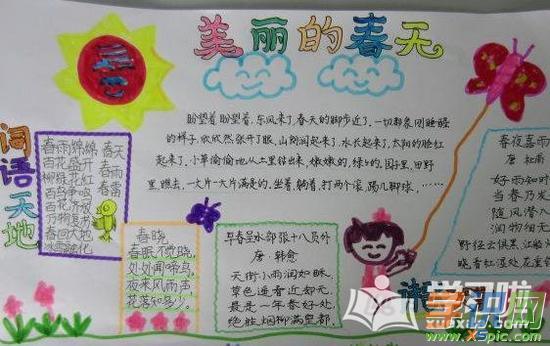 美丽的春天
盼望着盼望着,东风来了,春天的脚步近了,一切都象刚睡醒
的样子,欣欣然张开了眼,山朗润起来了,水长起来了,太阳的脸红
起来了,小草偷偷地从土里钻出来,嫩嫩的,绿绿的,园子里,田野
里瞧去,一大片一大片满是的,坐着,躺着,打两个滚,踢几脚球,……
词语天地
春雨绵绵 春天
百花盛开
柳绿花红 春雨
百鸟争鸣 春雷
百花齐放
万物复苏
春回大地
冰雪融化
春晓
春眠不觉晓,
处处闻啼鸟。
夜来风雨声
花落知多少。
早春呈水部张十八员外
唐.韩愈
天街小雨润如酥,
草色遥看近却无。
最是一年春好处,
绝胜烟柳满皇都。
春夜喜雨
唐 杜甫
好雨知时
当春乃发
随风潜入
润物细无
野径云俱黑,江船
晓看红湿处,花重
学习啦
www.x5pic.com